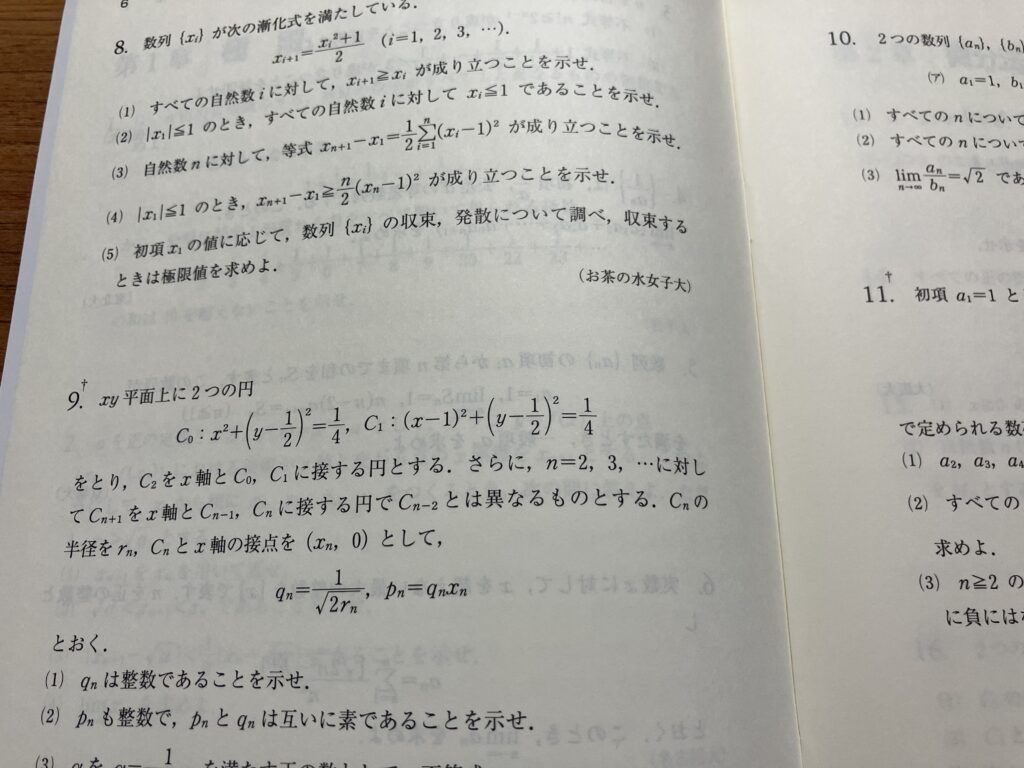 6
8. 数列 {xᵢ} が次の漸化式を満たしている.
xᵢ₊₁=(xᵢ²+1)/2 (i=1, 2, 3, …).
(1) すべての自然数 i に対して, xᵢ₊₁≧xᵢ が成り立つことを示せ.
(2) |x₁|≦1 のとき, すべての自然数 i に対して xᵢ≦1 であることを示せ.
(3) 自然数 n に対して, 等式 xₙ₊₁−x₁=1/2 Σ[i=1→n](xᵢ−1)² が成り立つことを示せ.
(4) |x₁|≦1 のとき, xₙ₊₁−x₁≧n/2(xₙ−1)² が成り立つことを示せ.
(5) 初項 x₁ の値に応じて, 数列 {xᵢ} の収束, 発散について調べ, 収束する
ときは極限値を求めよ.
(お茶の水女子大)
9.† xy 平面上に2つの円
C₀ : x²+(y−1/2)²=1/4, C₁ : (x−1)²+(y−1/2)²=1/4
をとり, C₂ を x 軸と C₀, C₁ に接する円とする. さらに, n=2, 3, …に対し
て Cₙ₊₁ を x 軸と Cₙ₋₁, Cₙ に接する円で Cₙ₋₂ とは異なるものとする. Cₙ の
半径を rₙ, Cₙ と x 軸の接点を (xₙ, 0) として,
qₙ=1/√(2rₙ), pₙ=qₙxₙ
とおく.
(1) qₙ は整数であることを示せ.
(2) pₙ も整数で, pₙ と qₙ は互いに素であることを示せ.
10. 2つの数列 {aₙ}, {bₙ}
(ア) a₁=1, b₁
(1) すべての n について
(2) すべての n につい
(3) lim[n→∞] aₙ/bₙ=√2 であ
11.† 初項 a₁=1 と
で定められる数
(1) a₂, a₃, a₄
(2) すべての
求めよ.
(3) n≧2 の
に負には